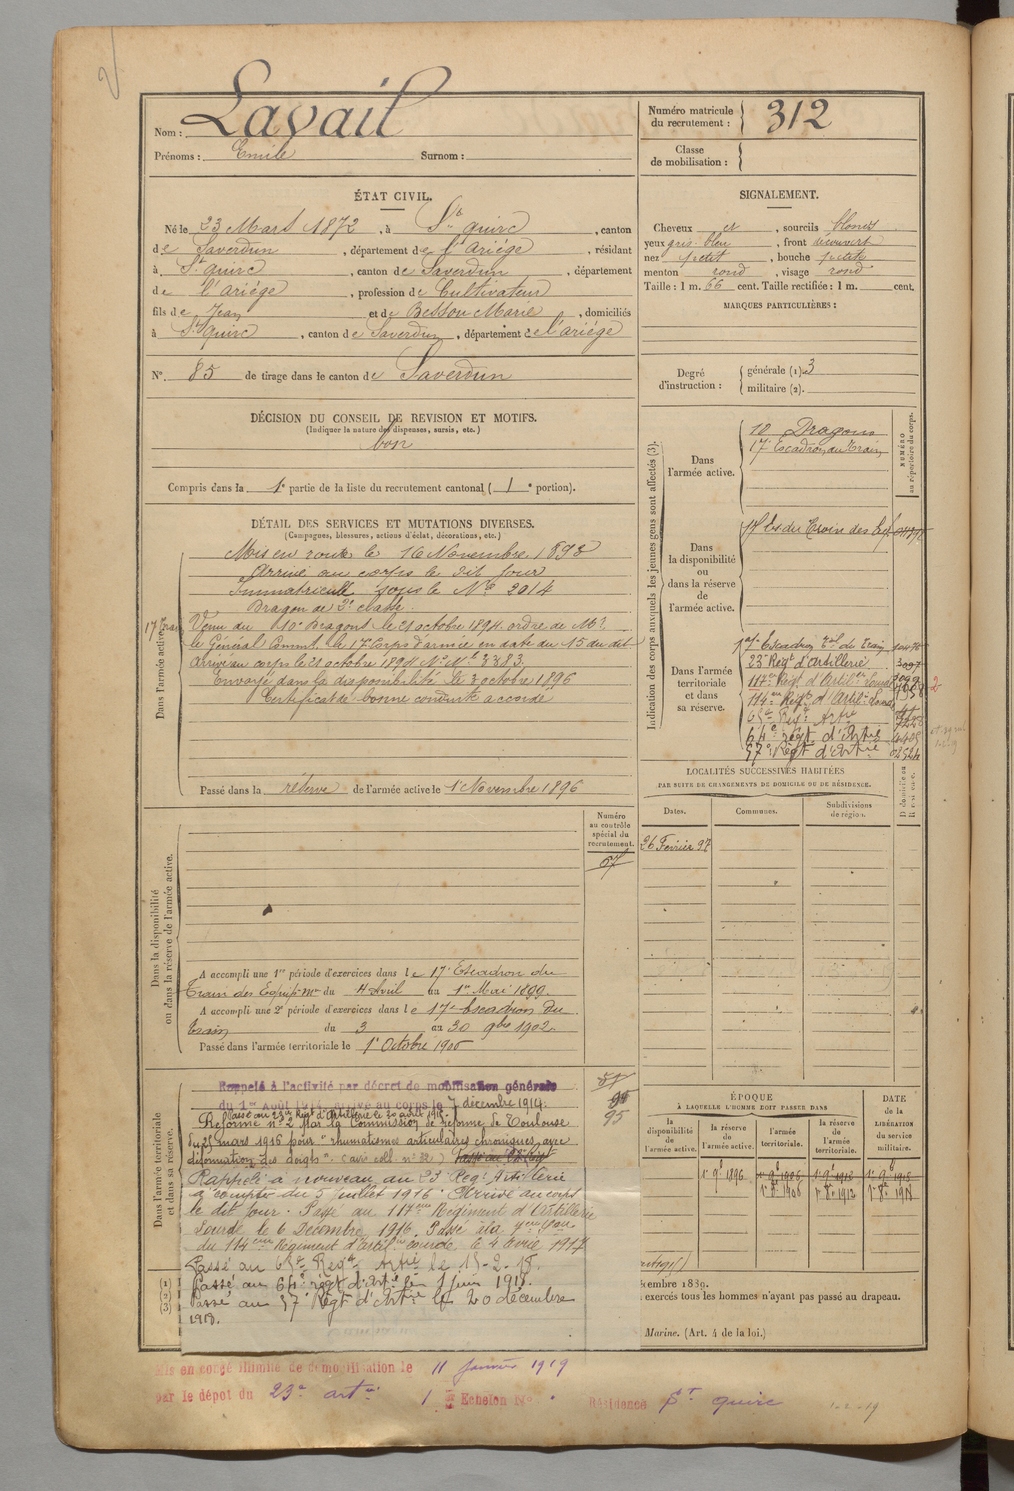 Nom : Lavail
Prénoms : Emile Surnom :
Numéro matricule du recrutement : 312
Classe de mobilisation :
ÉTAT CIVIL.
Né le 23 Mars 1872, à St Quirc, canton
de Saverdun, département de l'Ariège, résidant
à St quirc, canton de Saverdun, département
de l'Ariège, profession de Cultivateur
fils de Jean et de Bessou Marie, domiciliés
à St Quirc, canton de Saverdun, département de l'ariége
N°. 85 de tirage dans le canton de Saverdun
SIGNALEMENT.
Cheveux et, sourcils blonds
yeux gris bleu, front découvert
nez petit, bouche petite
menton rond, visage rond
Taille : 1 m. 66 cent. Taille rectifiée : 1 m. cent.
MARQUES PARTICULIÈRES :
Degré d'instruction : générale (1). 3
militaire (2).
DÉCISION DU CONSEIL DE REVISION ET MOTIFS.
(Indiquer la nature des dispenses, sursis, etc.)
bon
Compris dans la 1e partie de la liste du recrutement cantonal (1e portion).
DÉTAIL DES SERVICES ET MUTATIONS DIVERSES.
(Campagnes, blessures, actions d'éclat, décorations, etc.)
Dans l'armée active.
Mis en route le 16 Novembre 1893
Arrivé au corps le dit jour
Immatriculé sous le N° 2014
Dragon de 2e classe.
17e Train
Venu du 10e Dragons le 21 octobre 1894. ordre de Mr
le Général Commt le 17e Corps d'armée en date du 15 du dit
arrivé au corps le 21 octobre 1894 No Mle 3383.
Envoyé dans la disponibilité le 3 octobre 1896
Certificat de bonne conduite accordé
Passé dans la réserve de l'armée active le 1 Novembre 1896
Indication des corps auxquels les jeunes gens sont affectés (3).
NUMÉRO au répertoire du corps.
Dans l'armée active.
10 Dragons
17e Escadron du Train
Dans la disponibilité ou dans la réserve de l'armée active.
17e Es. du Train des Eq.
Dans l'armée territoriale et dans sa réserve.
17e Escadron Tal du Train
23e Régt d'artillerie 3097
117e Régt d'Artilie Lourde
114me Régt d'Artilie Lourde
65e Régt Artie
64e régt d'Artie
57e Régt d'Artie
LOCALITÉS SUCCESSIVES HABITÉES
PAR SUITE DE CHANGEMENTS DE DOMICILE OU DE RÉSIDENCE.
Dates. Communes. Subdivisions de région.
26 Fevrier 97
Numéro au contrôle spécial du recrutement.
57
Dans la disponibilité ou dans la réserve de l'armée active.
A accompli une 1re période d'exercices dans le 17e Escadron du
Train des Equip. mre du 4 Avril au 1er Mai 1899.
A accompli une 2e période d'exercices dans le 17e Escadron du
train du 3 au 30 9bre 1902.
Passé dans l'armée territoriale le 1er Octobre 1906
Dans l'armée territoriale et dans sa réserve.
57
95
Rappelé à l'activité par décret de mobilisation générale
du 1er Août 1914. arrivé au corps le 7 décembre 1914.
Passé au 23e Régt d'Artillerie le 20 août 1915.
Réformé n° 2 par la Commission de réforme de Toulouse
du 25 mars 1916 pour "rhumatismes articulaires chroniques, avec
déformation des doigts". (avis coll. n° 32)
Rappelé à nouveau au 23 Régt Artillerie
à compter du 5 juillet 1916. Arrivé au corps
le dit jour. Passé au 117me Régiment d'Artillerie
Lourde le 6 Décembre 1916. Passé à la
du 114eme Régiment d'Artilie Lourde le 4 Avril 1917
Passé au 65e Régt Artie le 15-2-18.
Passé au 64e régt d'Artie le 1 juin 1918.
Passé au 57e Régt d'Artie le 20 décembre
1918.
(1)
(2)
(3)
ÉPOQUE
À LAQUELLE L'HOMME DOIT PASSER DANS
DATE de la LIBÉRATION du service militaire.
la disponibilité de l'armée active.
la réserve de l'armée active.
l'armée territoriale.
la réserve de l'armée territoriale.
1er 9bre 1896
cembre 1889.
exercés tous les hommes n'ayant pas passé au drapeau.
Marine. (Art. 4 de la loi.)
Mis en congé illimité de démobilisation le 11 janvier 1919
par le dépot du 23e artie 1er Echelon N° Résidence St quirc
1-2-19